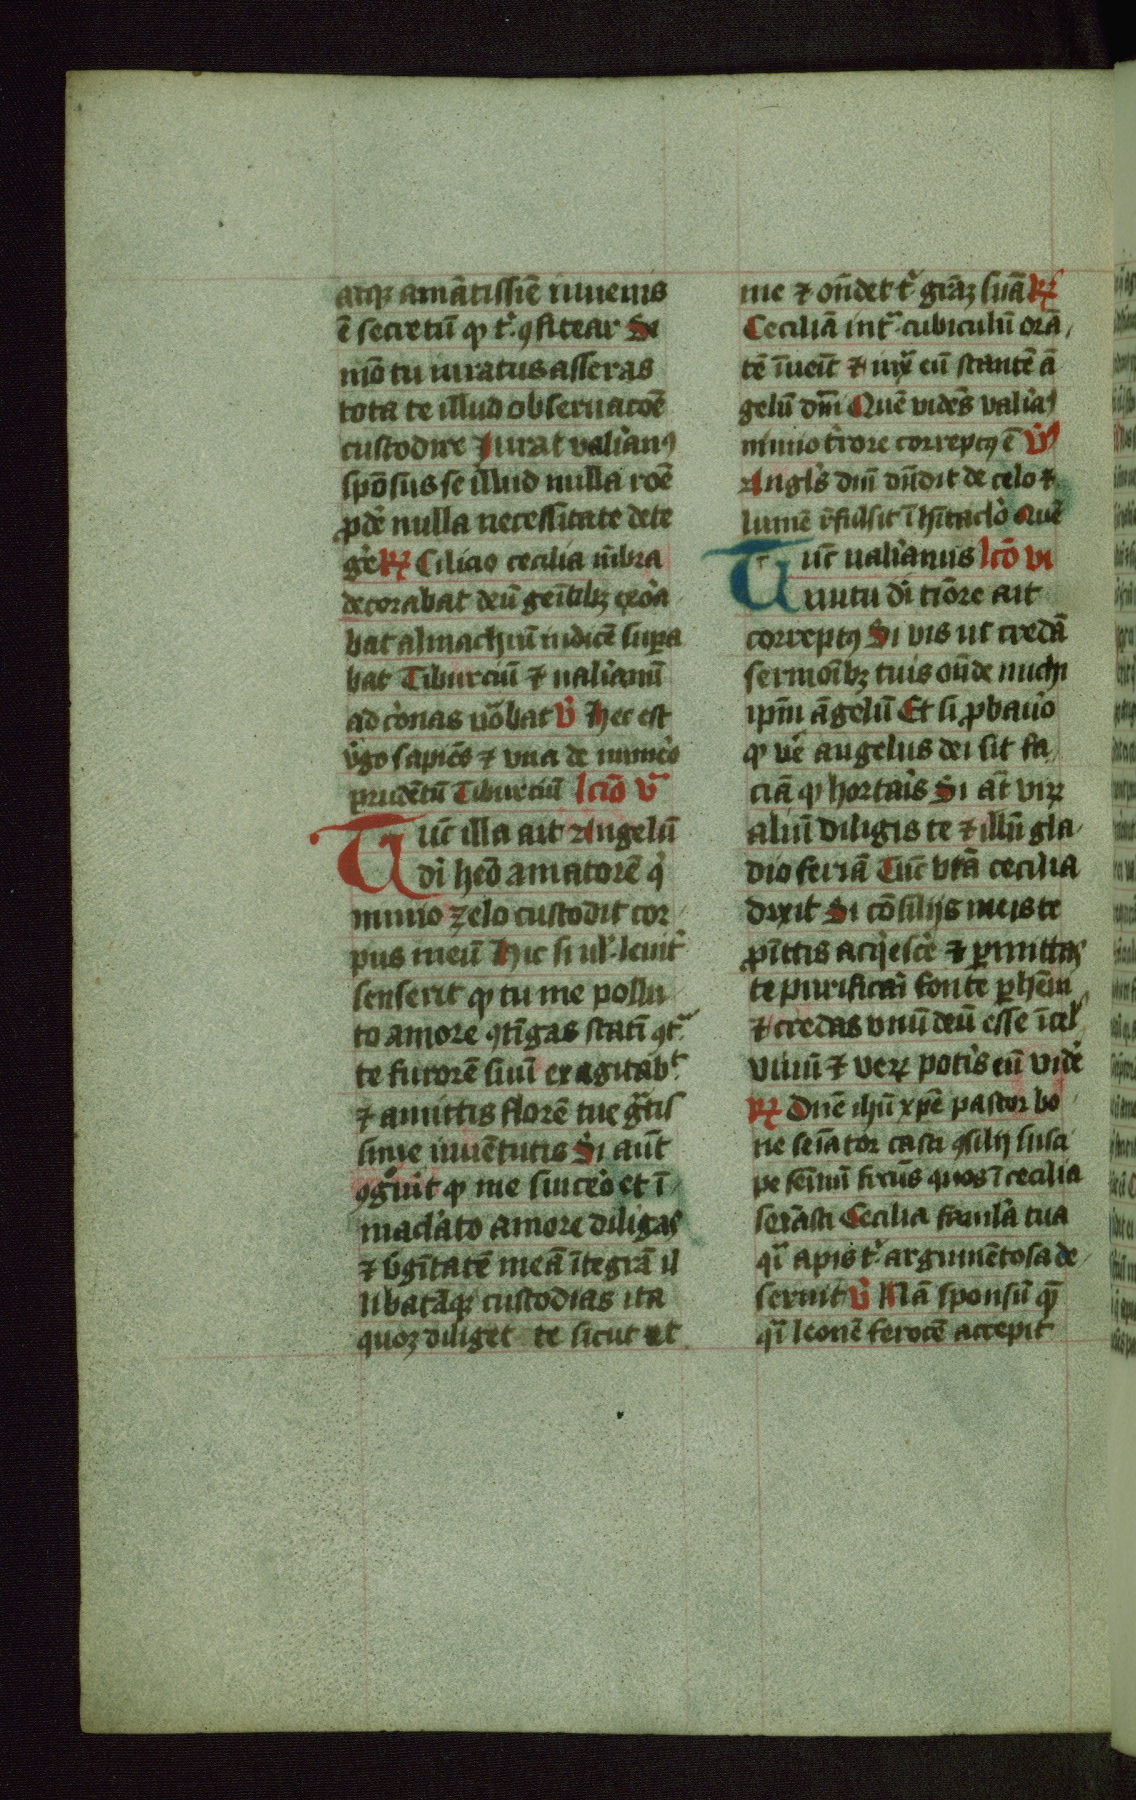 atque amātissīe iuuenis
ē secretū qͥ tͥ ꝯfitear Si
mō tu iuratus asseras
tota te illud obseruatōē
custodire Jurat valiānꝰ
spōsus se illud nulla rōē
ꝓdē nulla necessitate dete
gē℟ Cilicio cecilia mēbra
decorabat deū gemitibꝫ exoā
bat almachiū iudicē supera
bat Tiburciū ⁊ ualianū
ad coronas vōbat ℣ Hec est
v̓go sapiēs ⁊ vna de numēo
prudētū Tiburciū lcīo v
Tūc illa ait Angelū
dī heō amatorē qͥ
nimio zelo custodit cor
pus meū Hic si ul̓ leuit̓
senserit qͥ tu me pollu
to amore ꝯtīgas statī ꝯtͣ
te furorē suū exagitabͭ
⁊ amittis florē tue gͣtis
sime iuuētutis Si aūt
ꝯgͦuīt qͥ me sincēo et ī
maclāto amore diligas
⁊ v̓gītatē meā ītegrā il
libatāqꝫ custodias ita
quoꝫ diliget te sicut et
me ⁊ oñdet tͥ grāꝫ suā ℟
Ceciliā intͣ cubiculū orā
tē īueīt ⁊ iuxͣ eū stantē ā
gelū dm̄i Quē vidēs valiāꝰ
nimio t̓rore correptꝯ ē ℣
Anglꝰs dm̄i dn̄dit de celo ⁊
lumē rͤfulsit ī hītaclō Quē
Tūc ualiānus lcō vi
nutu dī tīore ait
correptꝯ Si vis ut credā
sermoībꝫ tuis oñde michi
ipm̄ āgelū Et si ꝓbauo
qͥ vē angelus dei sit fa
ciā qͥ hortaīs Si aūt virꝝ
aliū diligis te ⁊ illū gla
dio feriā Tūc bt̄ā cecilia
dixit Si cōsilijs meis te
ꝓmittis acqͥescē ⁊ ꝑmittas
te purificari fonte ꝑhēni
⁊ credas vnū deū esse ī cel
viuū ⁊ verꝝ potīs eū vidē
℟ Dn̄e ihū xpē pastor bo
ne seīator casti ꝯsilij susci
pe semīū fructꝰs quos ī cecilia
semīasti Cecilia famlā tua
qͣi apis tͥ argumētosa de
seruit ℣ Nā sponsū quē
qͣi leonē ferocē accepit